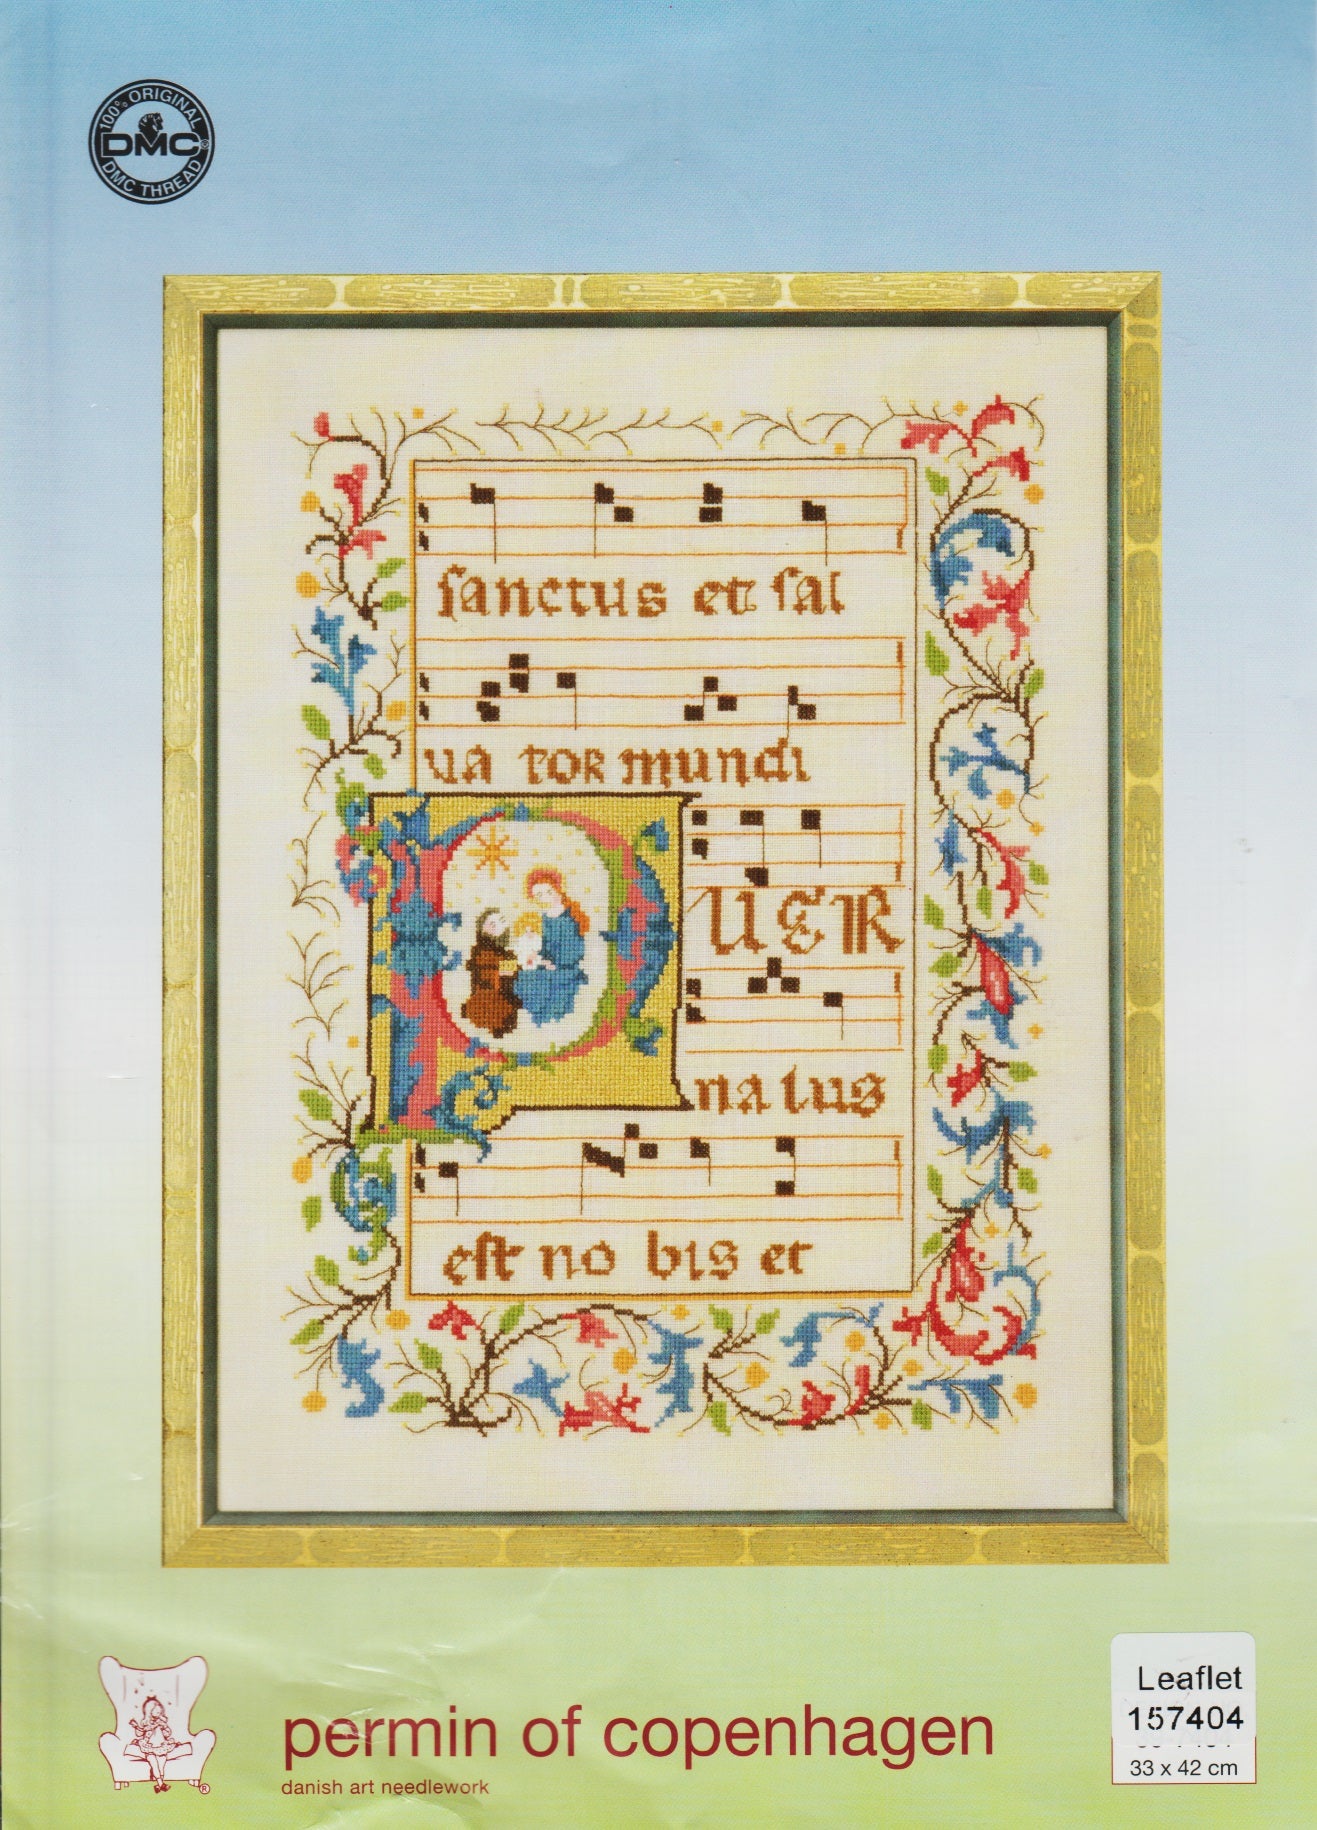 100% ORIGINAL
DMC
DMC THREAD
ſanctus et ſal
va tor mundi
PUER
natus
eſt no bis et
permin of copenhagen
danish art needlework
Leaflet
157404
33 x 42 cm